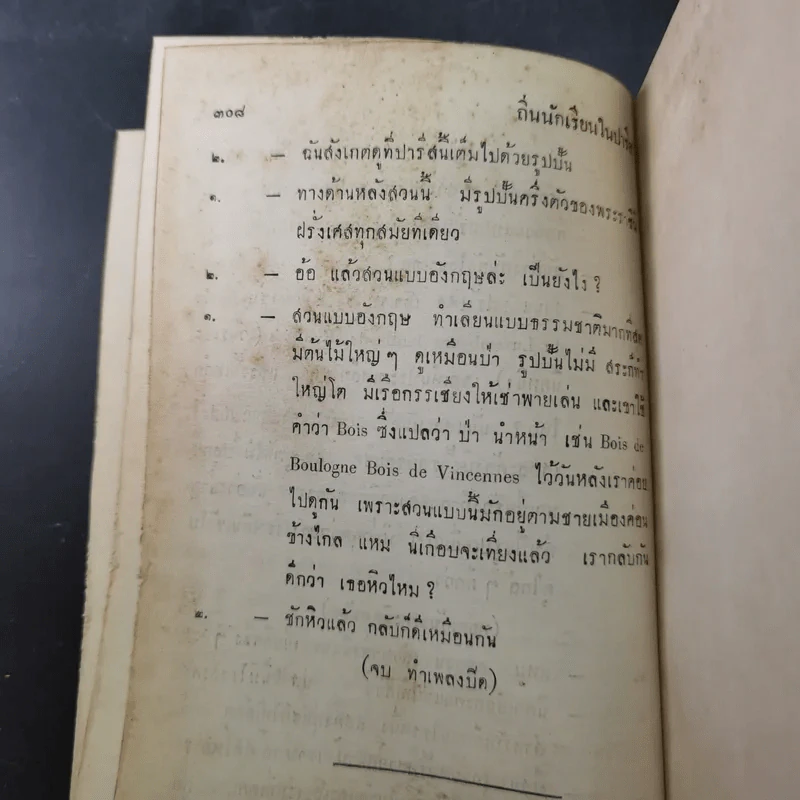 ๓๐๘ ถิ่นนักเรียนในปารีส
๒. — ฉันสังเกตดูที่ปารีสนี้เต็มไปด้วยรูปปั้น
๑. — ทางด้านหลังสวนนี้ มีรูปปั้นครึ่งตัวของพระราชินี
ฝรั่งเศสทุกสมัยทีเดียว
๒. — อ้อ แล้วสวนแบบอังกฤษล่ะ เป็นยังไง ?
๑. — สวนแบบอังกฤษ ทำเลียนแบบธรรมชาติมากที่สุด
มีต้นไม้ใหญ่ ๆ ดูเหมือนป่า รูปปั้นไม่มี สระก็ทำ
ใหญ่โต มีเรือกรรเชียงให้เช่าพายเล่น และเขาใช้
คำว่า Bois ซึ่งแปลว่า ป่า นำหน้า เช่น Bois de
Boulogne Bois de Vincennes ไว้วันหลังเราค่อย
ไปดูกัน เพราะสวนแบบนี้มักอยู่ตามชายเมืองค่อน
ข้างไกล แหม นี่เกือบจะเที่ยงแล้ว เรากลับกัน
ดีกว่า เธอหิวไหม ?
๒. — ชักหิวแล้ว กลับก็ดีเหมือนกัน
(จบ ทำเพลงปิด)